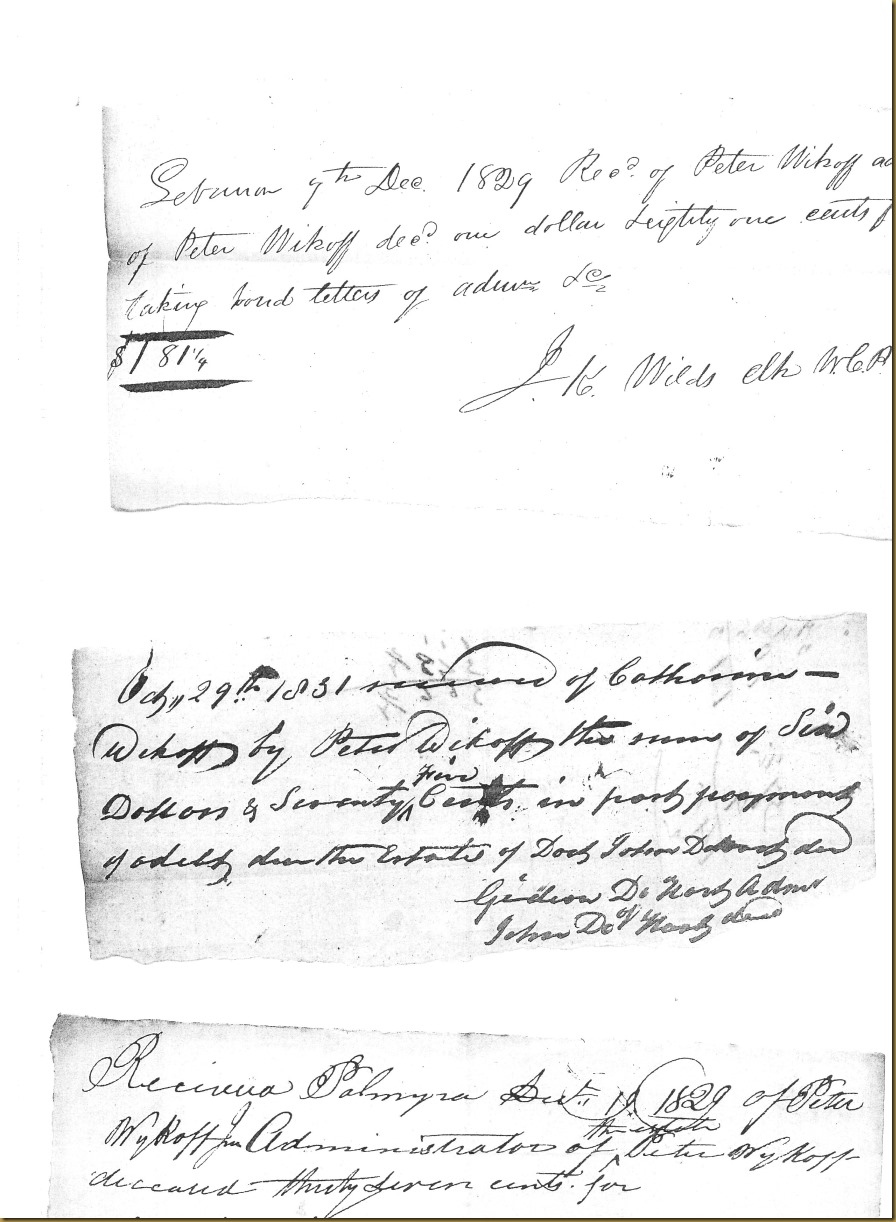 Lebanon 9th Dec. 1829 Recd. of Peter Wikoff ad
of Peter Wikoff decd one dollar & eighty one cents f
taking bond letters of admn &c
$1 81 1/4
J. K. Wilds clk W. C. P
29th 1831 received of Catharine
Wikoff by Peter Wikoff the sum of Six
Dollars & Seventy Five Cents in part payment
of a debt due the Estate of Doct John Dehart
Gideon De Hart Admr
of
John De Hart decd
Received Palmyra 1829 of Peter
Wykoff Jun Administrator of the estate Peter Wykoff
deceased thirty seven cents for